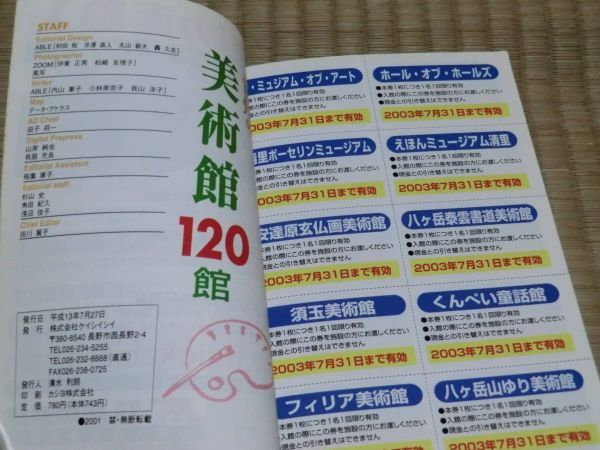 STAFF
Editorial Design
ABLE【和田 拓 井澤 直人 丸山 敏夫 轟 久志】
Photographer
ZOOM【伊東 正男 松崎 友理子】
風写
Writer
ABLE【内山 郷子 小林美奈子 我山 洋子】
Map
データ・アトラス
AD Chief
田子 将一
Digital Prepress
山岸 純也
呉服 克良
Editorial Assistant
厚子
Editorial staff
杉山 史
角田 紀久
浅沼 佳子
Chief Editor
田川 賢子
発行日 平成13年7月27日
発行 株式会社ケイシイシイ
〒380-8540 長野市西長野2-4
TEL026-234-5255
TEL026-232-8888(直通)
FAX026-238-0725
発行人 清水 利朗
印刷 カシヨ株式会社
定価 780円(本体743円)
●2001 禁・無断転載
美術館
120
館
・ミュジアム・オブ・アート
本券1枚につき1名1回限り有効
入館の際にこの券を施設の方にお渡しください
現金との引き替えはできません
2003年7月31日まで有効
ホール・オブ・ホールズ
●本券1枚につき1名1回限り有効
●入館の際にこの券を施設の方にお渡しください
●現金との引き替えはできません
2003年7月31日まで有効
里ポーセリンミュージアム
本券1枚につき1名1回限り有効
入館の際にこの券を施設の方にお渡しください
現金との引き替えはできません
2003年7月31日まで有効
えほんミュージアム清里
●本券1枚につき1名1回限り有効
●入館の際にこの券を施設の方にお渡しください
●現金との引き替えはできません
2003年7月31日まで有効
安達原玄仏画美術館
本券1枚につき1名1回限り有効
入館の際にこの券を施設の方にお渡しください
現金との引き替えはできません
2003年7月31日まで有効
八ヶ岳泰雲書道美術館
●本券1枚につき1名1回限り有効
●入館の際にこの券を施設の方にお渡しください
●現金との引き替えはできません
2003年7月31日まで有効
須玉美術館
●本券1枚につき1名1回限り有効
●入館の際にこの券を施設の方にお渡しください
●現金との引き替えはできません
2003年7月31日まで有効
くんぺい童話館
●本券1枚につき1名1回限り有効
●入館の際にこの券を施設の方にお渡しください
●現金との引き替えはできません
2003年7月31日まで有効
フィリア美術館
●本券1枚につき1名1回限り有効
●入館の際にこの券を施設の方にお渡しください
●現金との引き替えはできません
八ヶ岳山ゆり美術館
●本券1枚につき1名1回限り有効
●入館の際にこの券を施設の方にお渡しください
●現金との引き替えはできません